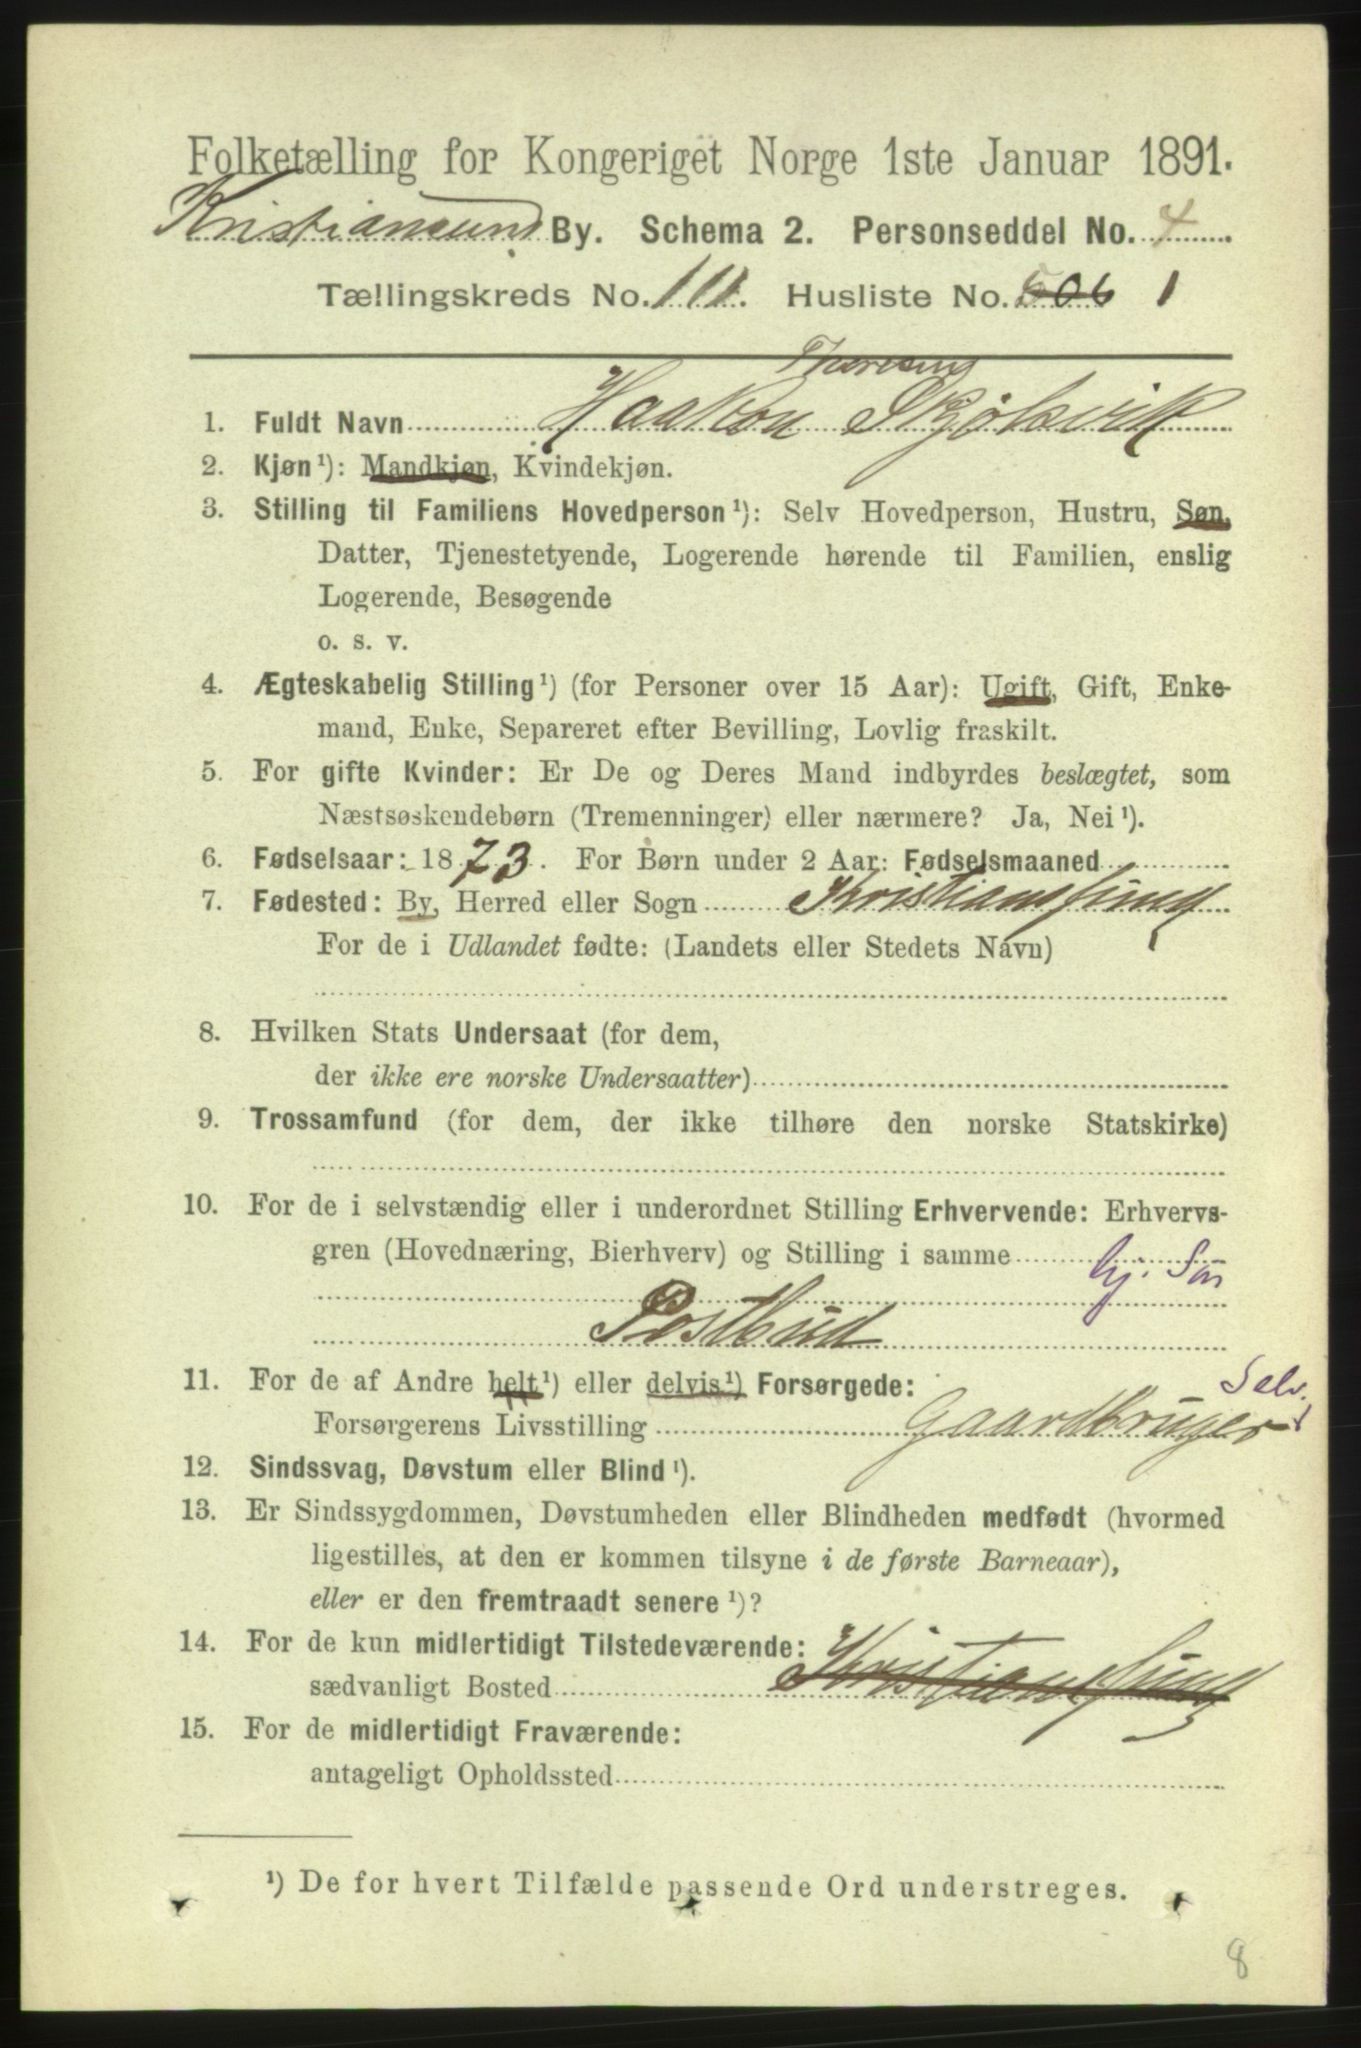 Folketælling for Kongeriget Norge 1ste Januar 1891.
Kristiansund By. Schema 2. Personseddel No. 4
Tællingskreds No. 111. Husliste No. 506 1
1. Fuldt Navn Haakon Theresius Skjølsvik
2. Kjøn ¹): Mandkjøn, Kvindekjøn.
3. Stilling til Familiens Hovedperson ¹): Selv Hovedperson, Hustru, Søn,
Datter, Tjenestetyende, Logerende hørende til Familien, enslig
Logerende, Besøgende
o. s. v.
4. Ægteskabelig Stilling ¹) (for Personer over 15 Aar): Ugift, Gift, Enke-
mand, Enke, Separeret efter Bevilling, Lovlig fraskilt.
5. For gifte Kvinder: Er De og Deres Mand indbyrdes beslægtet, som
Næstsøskendebørn (Tremenninger) eller nærmere? Ja, Nei ¹).
6. Fødselsaar: 1873. For Børn under 2 Aar: Fødselsmaaned
7. Fødested: By, Herred eller Sogn Kristianssund
For de i Udlandet fødte: (Landets eller Stedets Navn)
8. Hvilken Stats Undersaat (for dem,
der ikke ere norske Undersaatter)
9. Trossamfund (for dem, der ikke tilhøre den norske Statskirke)
10. For de i selvstændig eller i underordnet Stilling Erhvervende: Erhvervs-
gren (Hovednæring, Bierhverv) og Stilling i samme hj. Søn
Postbud
11. For de af Andre helt ¹) eller delvis ¹) Forsørgede: Selv.
Forsørgerens Livsstilling Gaardbruger
12. Sindssvag, Døvstum eller Blind ¹).
13. Er Sindssygdommen, Døvstumheden eller Blindheden medfødt (hvormed
ligestilles, at den er kommen tilsyne i de første Barneaar),
eller er den fremtraadt senere ¹)?
14. For de kun midlertidigt Tilstedeværende:
sædvanligt Bosted Kristianssund
15. For de midlertidigt Fraværende:
antageligt Opholdssted
¹) De for hvert Tilfælde passende Ord understreges.
8